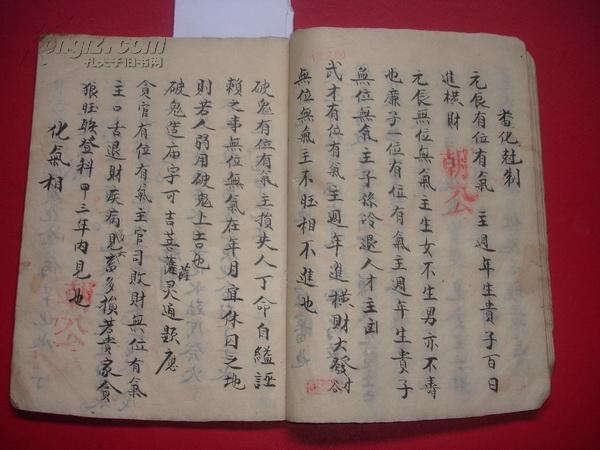 看化尅制
元辰有位有氣 主週年生貴子百日
進横財
元辰無位無氣主生女不生男亦不壽
也廉子一位有位有氣主週年生貴子
無位無氣主子孫冷退人才主
武才有位有氣主週年進横財大發財
無位無氣主不旺相不進也
破鬼有位有氣主損失人丁命自縊誣
賴之事無位無氣在年月宜休囚之地
則若人弱用破鬼上吉也
破鬼造庙字可吉菩薩灵通顯應
薩
貪官有位有氣主官司敗財無位有氣
主口舌退財疾病見畜多損若貴家貪
狼旺联登科甲三年内見也
化氣相
朝六公
朝六公
孔夫子旧书网